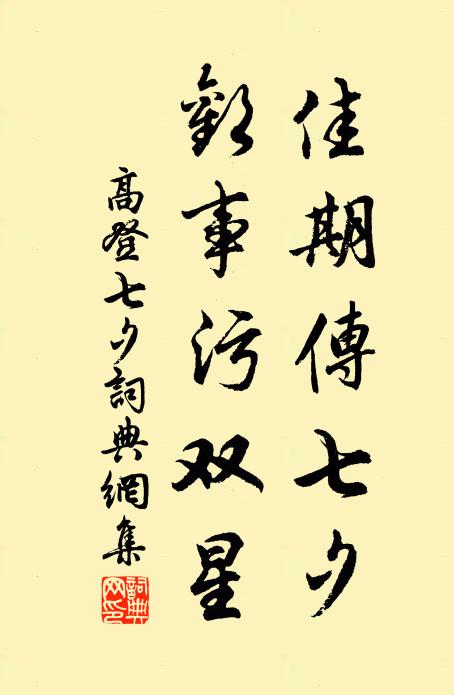 佳期傳七夕
歡事污双星
高登七夕詞典網集
詞典
网印